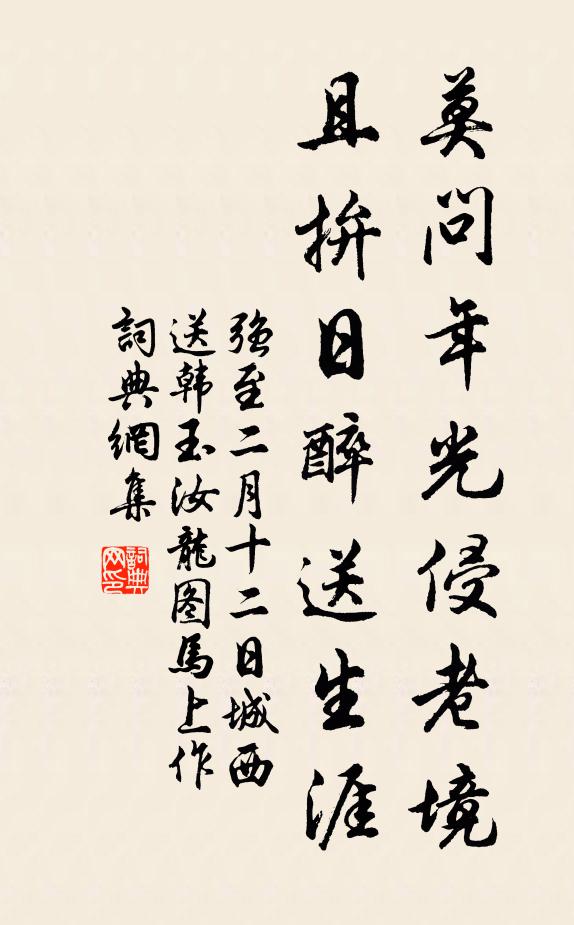 莫问年光侵老境
且拚日醉送生涯
强至二月十二日城西
送韩玉汝龍图馬上作
詞典網集
詞典网印